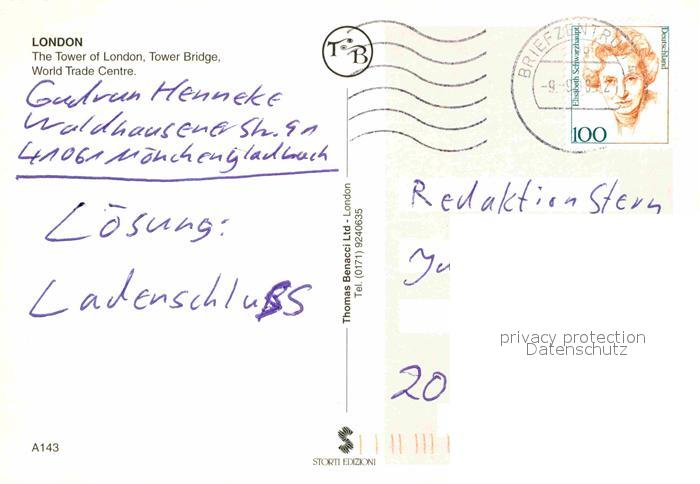 LONDON
The Tower of London, Tower Bridge,
World Trade Centre.
Gudrun Henneke
Waldhausener Str. 91
41061 Mönchengladbach
Lösung:
Ladenschluss
A143
Thomas Benacci Ltd - London
Tel. (0171) 9240635
STORTI EDIZIONI
T B
BRIEFZENTRUM
Elisabeth Schwarzhaupt
Deutschland
100
Redaktion Stern
20
privacy protection
Datenschutz